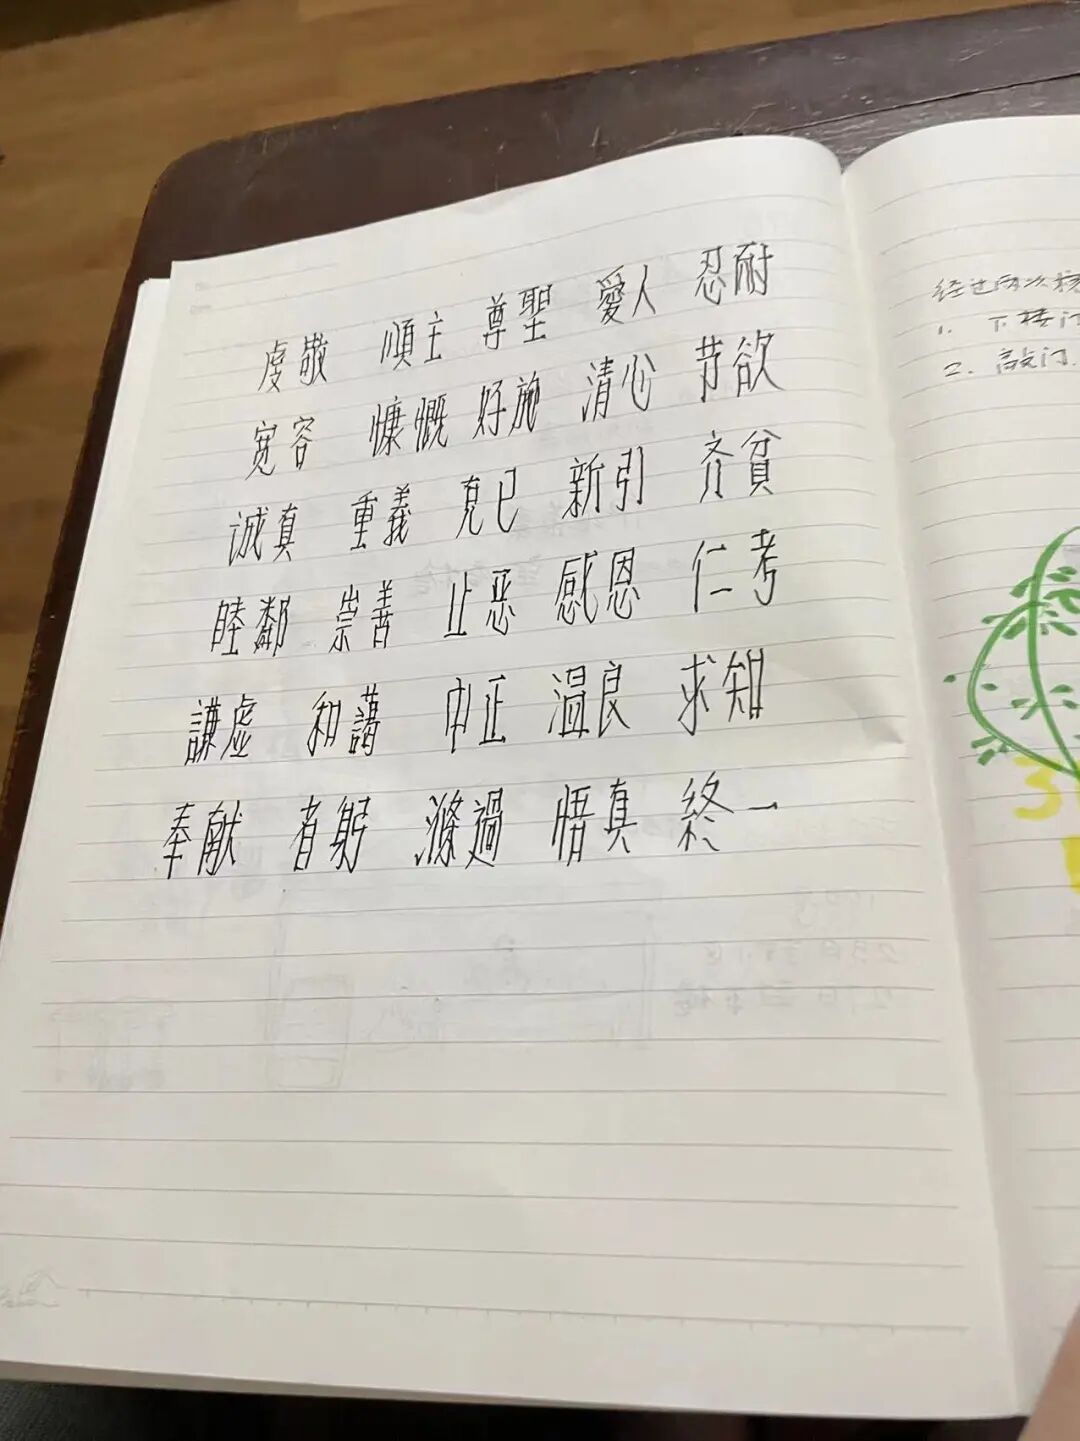 虔敬 順主 尊聖 愛人 忍耐
宽容 慷慨 好施 清心 节欲
诚真 重義 克已 新引 齐貧
睦鄰 崇善 止恶 感恩 仁考
謙虚 和藹 中正 温良 求知
奉献 者躬 滌過 悟真 終一
经过两次
1. 下楼门
2. 敲门